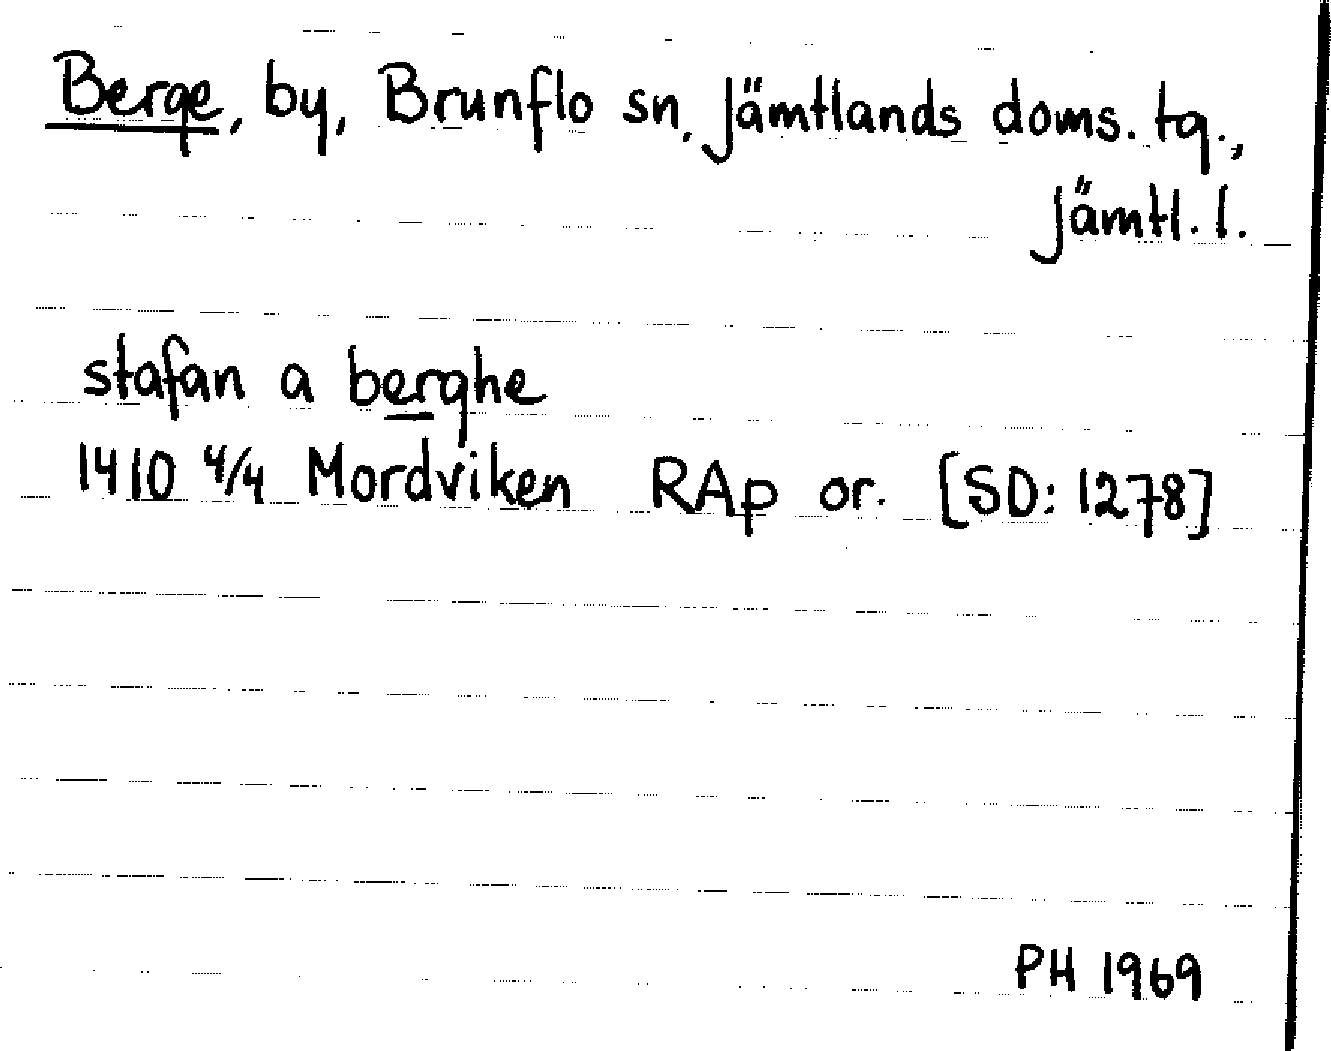 Berge, by, Brunflo sn, Jämtlands doms. tg.,
Jämtl. l.
stafan a berghe
1410 4/4 Mordviken RAp or. [SD: 1278]
PH 1969